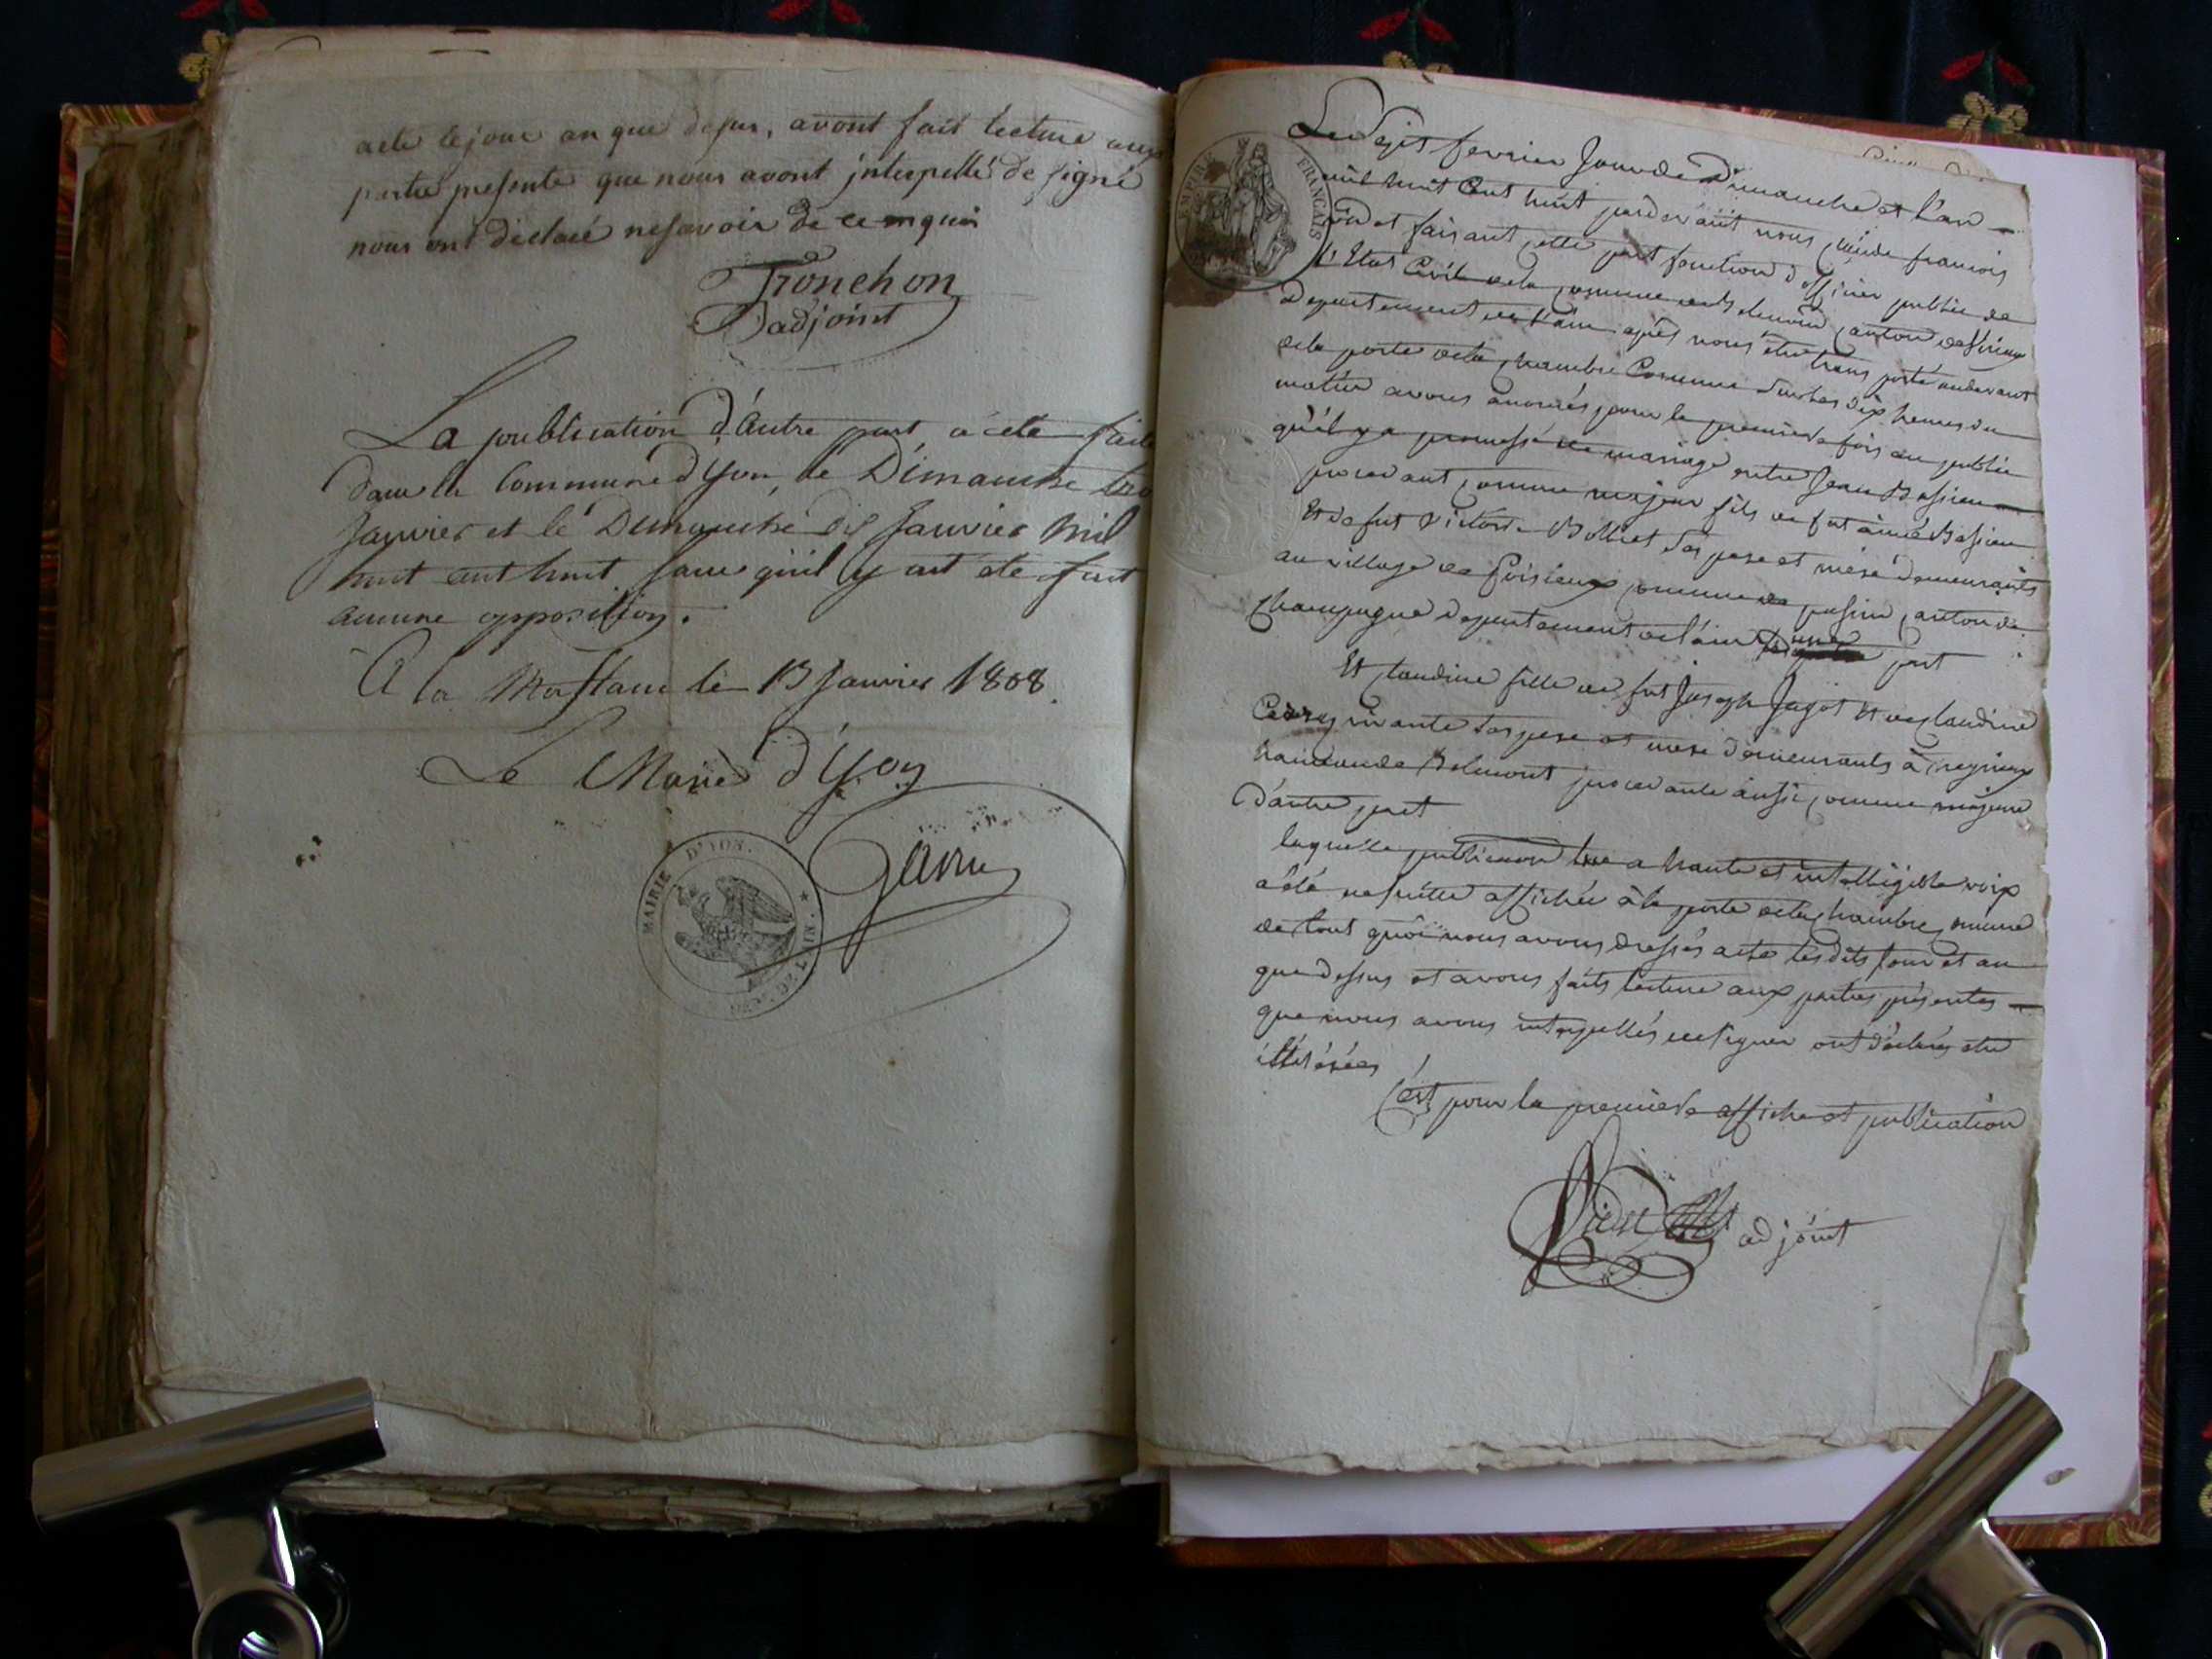 acte le jour an que desus, avont fait lecture aux
partie presente que nous avont jnterpellé de signé
nous ont déclaré ne savoir de ce enquis
Tronchon
adjoint
La publication d'Autre part a été faite
dans la Commune d'Yon, le Dimanche troi
Janvier et le Dimanche dix Janvier mil
huit cent huit sans qu'il y ait été fait
aucune opposition.
A la le 13 Janvier 1808.
Le Maire d'Yon
MAIRIE D'YON.
EMPIRE FRANCAIS
Le Sept fevrier Jour de Dimanche et L'an
mil huit Cent huit pardevant nous Claude francois
et faisant cette part fonction d'officier public de
l'Etat Civil de la Commune de Belmont canton de Virieux
departement de l'ain après nous être transporté au devant
de la porte de la chambre Commune Sur les dix heures du
matin avons anoncés pour la premiere fois au public
qu'il y a promesse de mariage entre Jean
procedant comme majeur fils de fut aimé
Et de fut Victoire Bolliet Ses pere et mere demeurants
au village de Poisieux commune de canton de
champagne departement de l'ain D'une part
Et Claudine fille de fut Joseph Jagot Et de Claudine
vivante Ses pere et mere demeurants à
hameau de Belmont procedante aussi comme majeure
D'autre part
laquelle publication lue a haute et intelligible voix
a été de suitte affichée à la porte de la chambre commune
de tout quoi nous avons dressés acte lesdits Jour et an
que dessus et avons faits lecture aux parties présentes
que nous avons interpellés de signer ont déclarés etre
illitérées
C'est pour la premiere affiche et publication
adjoint